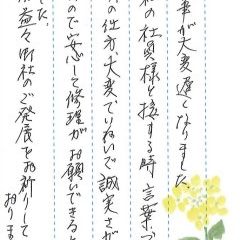 事が大変遅くなりました。
社の社員様と接する時言葉づ
の仕方、大変でいねいで誠実さが
ので安心して修理がお願いできると
した。
益々御社のご発展をお祈りして
おりま